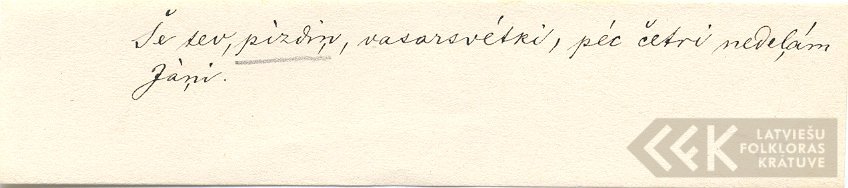 Še tev, pizdiņ, vasarsvētki, pēc četri nedeļām
Jāņi.
LATVIEŠU
FOLKLORAS
KRĀTUVE